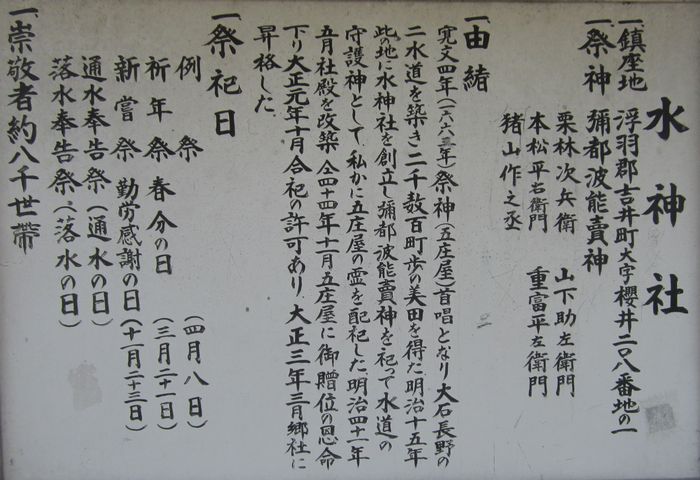 水神社
一鎮座地 浮羽郡吉井町大字櫻井二〇八番地の一
一祭神 彌都波能賣神
栗林次兵衛 山下助左衛門
本松平右衛門 重富平左衛門
猪山作之丞
一由緒
寛文四年(一六六三年)祭神(五庄屋)首唱となり大石長野の
二水道を築き二千数百町歩の美田を得た明治十五年
此の地に水神社を創立し彌都波能賣神を祀って水道の
守護神として私かに五庄屋の霊を配祀した明治四十一年
五月社殿を改築が仝四十四年十一月五庄屋に御贈位の恩命
下り大正元年十月合祀の許可あり大正三年三月郷社に
昇格した
一祭祀日
例祭 (四月八日)
祈年祭 春分の日 (三月二十一日)
新嘗祭 勤労感謝の日(十一月二十三日)
通水奉告祭(通水の日)
落水奉告祭(落水の日)
一崇敬者約八千世帯